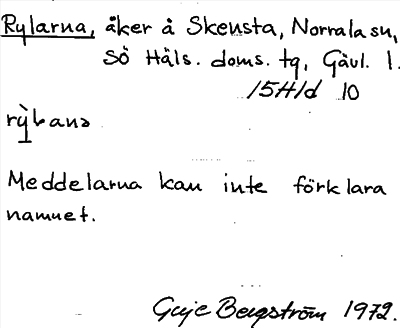 Rylarna, åker å Skensta, Norrala sn,
Sö Häls. doms. tg, Gävl. l.
15H1d 10
Meddelarna kan inte förklara
namnet.
Bergström 1972.